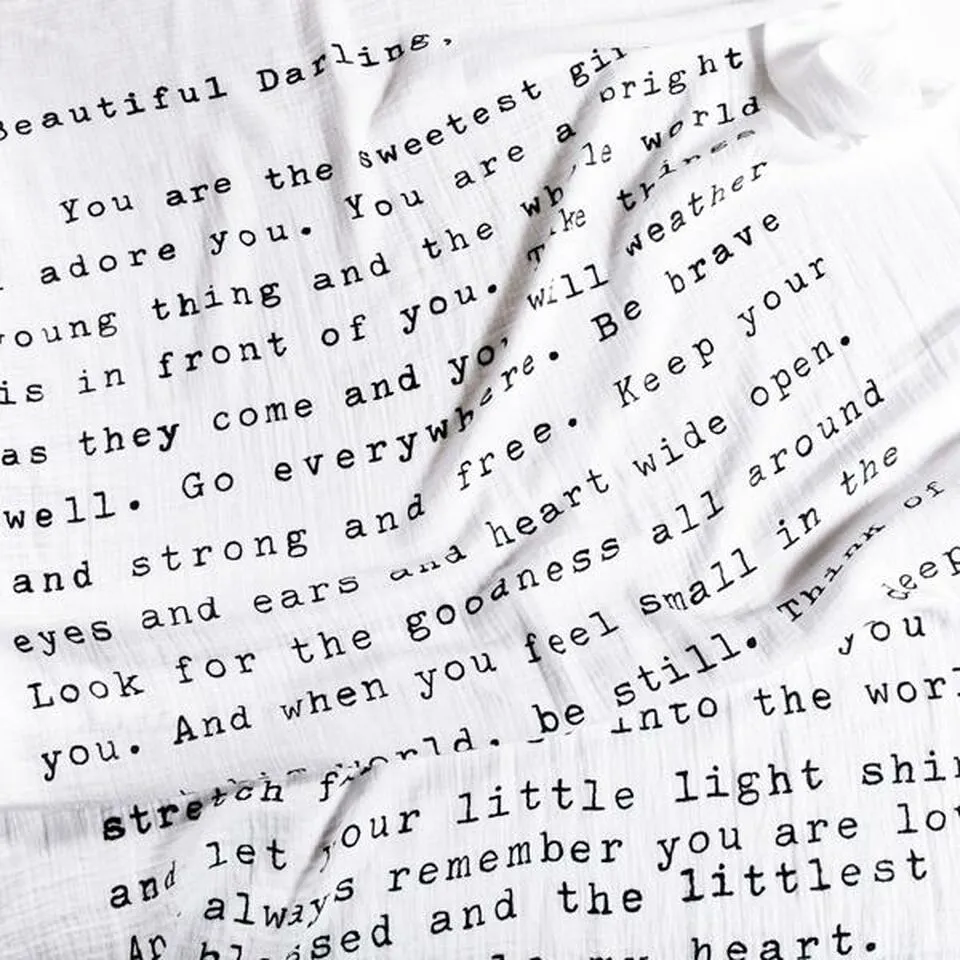 Beautiful Darling,
You are the sweetest
adore you. You are a bright
young thing and the world
is in front of you.
as they come and will weather
well. Go everywhere. Be brave
and strong and free. Keep your
eyes and ears and heart wide open.
Look for the goodness all around
you. And when you feel small in the
be still. Think of
stretch you deep
into the
and let your little light
always remember you are
and the littlest
heart.